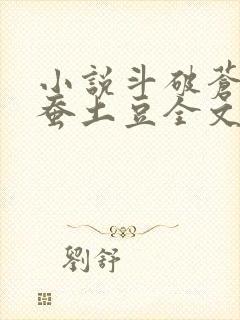 小說斗破蒼
蚕土豆全文
劉舒